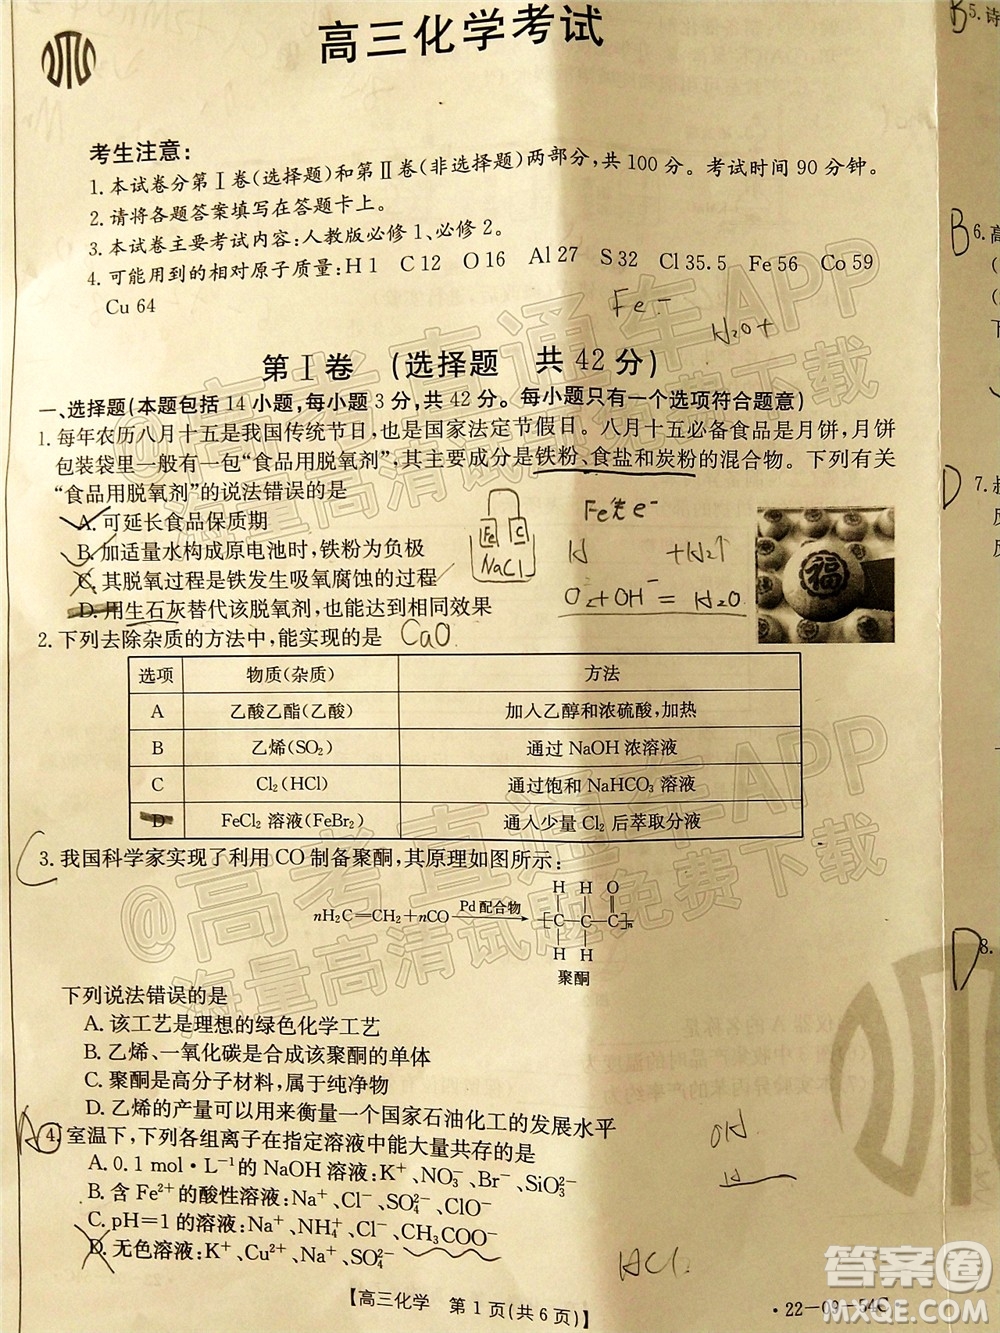 高三化学考试
考生注意:
1.本试卷分第Ⅰ卷(选择题)和第Ⅱ卷(非选择题)两部分,共100分。考试时间90分钟。
2.请将各题答案填写在答题卡上。
3.本试卷主要考试内容:人教版必修1、必修2。
4.可能用到的相对原子质量:H 1 C 12 O 16 Al 27 S 32 Cl 35.5 Fe 56 Co 59
Cu 64
Fe-
H₂O+
第Ⅰ卷 (选择题 共42分)
一、选择题(本题包括14小题,每小题3分,共42分。每小题只有一个选项符合题意)
1.每年农历八月十五是我国传统节日,也是国家法定节假日。八月十五必备食品是月饼,月饼
包装袋里一般有一包“食品用脱氧剂”,其主要成分是铁粉、食盐和炭粉的混合物。下列有关
“食品用脱氧剂”的说法错误的是
A.可延长食品保质期
B.加适量水构成原电池时,铁粉为负极
C.其脱氧过程是铁发生吸氧腐蚀的过程
D.用生石灰替代该脱氧剂,也能达到相同效果
Fe C
NaCl
Fe失e⁻
H +H₂↑
O₂+OH⁻=H₂O
福
2.下列去除杂质的方法中,能实现的是 CaO
选项 物质(杂质) 方法
A 乙酸乙酯(乙酸) 加入乙醇和浓硫酸,加热
B 乙烯(SO₂) 通过NaOH浓溶液
C Cl₂(HCl) 通过饱和NaHCO₃溶液
D FeCl₂溶液(FeBr₂) 通入少量Cl₂后萃取分液
C 3.我国科学家实现了利用CO制备聚酮,其原理如图所示:
nH₂C=CH₂+nCO Pd配合物
H H O
[C—C—C]n
H H
聚酮
下列说法错误的是
A.该工艺是理想的绿色化学工艺
B.乙烯、一氧化碳是合成该聚酮的单体
C.聚酮是高分子材料,属于纯净物
D.乙烯的产量可以用来衡量一个国家石油化工的发展水平
A 4.室温下,下列各组离子在指定溶液中能大量共存的是
A.0.1 mol·L⁻¹的NaOH溶液:K⁺、NO₃⁻、Br⁻、SiO₃²⁻
B.含Fe²⁺的酸性溶液:Na⁺、Cl⁻、SO₄²⁻、ClO⁻
C.pH=1的溶液:Na⁺、NH₄⁺、Cl⁻、CH₃COO⁻
D.无色溶液:K⁺、Cu²⁺、Na⁺、SO₄²⁻
OH
H
HCl
【高三化学 第1页(共6页)】
·22-09-54C·
B 5.诗
B 6.高
D 7.
D 8.
@高考直通车APP
海量高清试题免费下载
@高考直通车APP
海量高清试题免费下载
答案圈
MXQE.COM